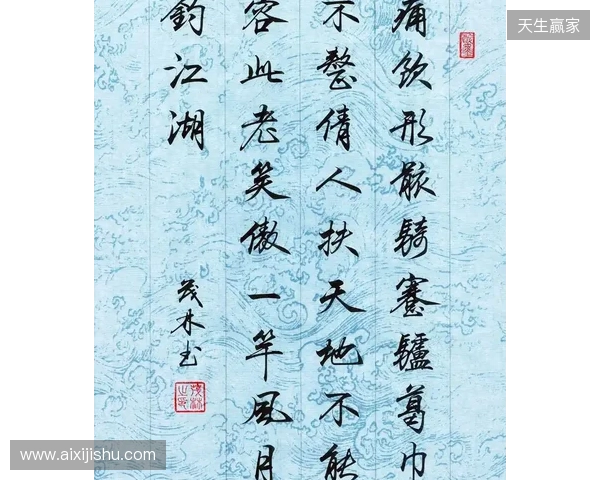 天生赢家
痛飲形骸騎蹇驢葛巾
不整倩人扶天地不能
容此老笑傲一竿風月
釣江湖
茂林书
www.aixijishu.com